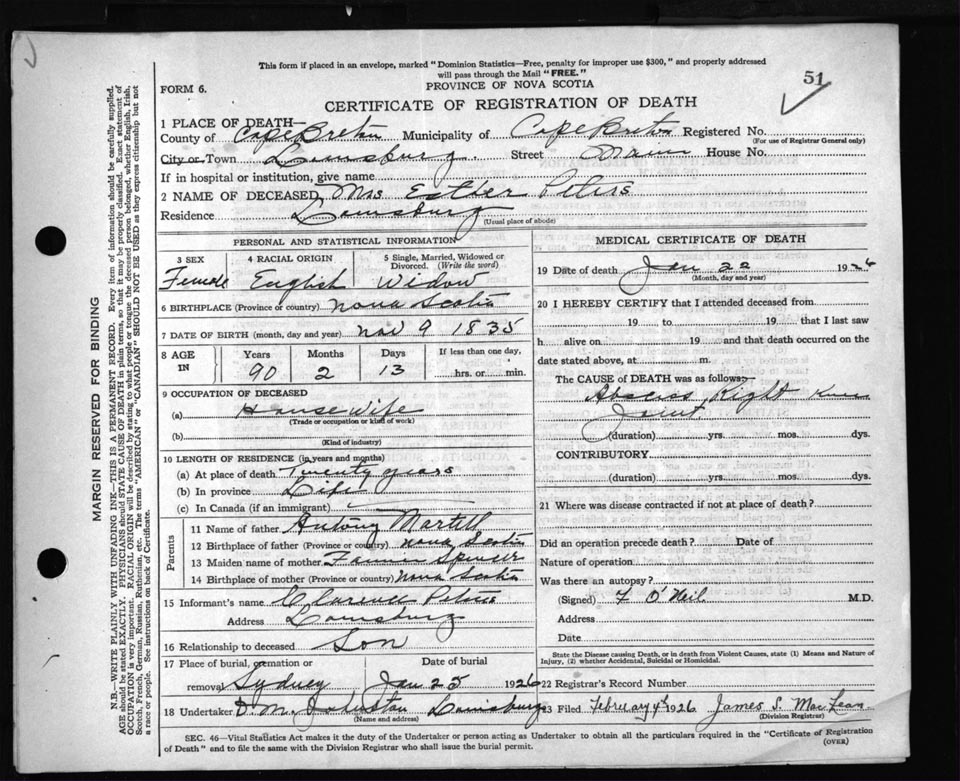 This form if placed in an envelope, marked "Dominion Statistics—Free, penalty for improper use $300," and properly addressed
will pass through the Mail "FREE."
51
FORM 6.
PROVINCE OF NOVA SCOTIA
CERTIFICATE OF REGISTRATION OF DEATH
1 PLACE OF DEATH—
County of Cape Breton Municipality of Cape Breton Registered No.
(For use of Registrar General only)
City or Town Louisburg Street Main House No.
If in hospital or institution, give name
2 NAME OF DECEASED Mrs Esther Peters
Residence Louisburg
(Usual place of abode)
PERSONAL AND STATISTICAL INFORMATION
3 SEX 4 RACIAL ORIGIN 5 Single, Married, Widowed or Divorced. (Write the word)
Female English Widow
6 BIRTHPLACE (Province or country) Nova Scotia
7 DATE OF BIRTH (month, day and year) Nov 9 1835
8 AGE IN Years Months Days If less than one day,
90 2 13 hrs. or min.
9 OCCUPATION OF DECEASED
(a) House Wife
(Trade or occupation or kind of work)
(b)
(Kind of industry)
10 LENGTH OF RESIDENCE (in years and months)
(a) At place of death Twenty years
(b) In province Life
(c) In Canada (if an immigrant)
Parents
11 Name of father Antony Martell
12 Birthplace of father (Province or country) Nova Scotia
13 Maiden name of mother Spencer
14 Birthplace of mother (Province or country) Nova Scotia
15 Informant's name Clarence Peters
Address Louisburg
16 Relationship to deceased Son
17 Place of burial, cremation or Date of burial
removal Sydney Jan 25 1926
18 Undertaker D. M. Johnston Louisburg
(Name and address)
MEDICAL CERTIFICATE OF DEATH
19 Date of death Jan 22 1926
(Month, day and year)
20 I HEREBY CERTIFY that I attended deceased from
19 to 19 that I last saw
h alive on 19 and that death occurred on the
date stated above, at m.
The CAUSE of DEATH was as follows:
Abscess Right Knee
Joint
(duration) yrs. mos. dys.
CONTRIBUTORY
(duration) yrs. mos. dys.
21 Where was disease contracted if not at place of death?
Did an operation precede death? Date of
Nature of operation
Was there an autopsy?
(Signed) F O'Neil M.D.
Address
Date
State the Disease causing Death, or in death from Violent Causes, state (1) Means and Nature of
Injury, (2) whether Accidental, Suicidal or Homicidal.
22 Registrar's Record Number
23 Filed February 4th 1926 James S. MacLean
(Division Registrar)
SEC. 46—Vital Statistics Act makes it the duty of the Undertaker or person acting as Undertaker to obtain all the particulars required in the "Certificate of Registration
of Death" and to file the same with the Division Registrar who shall issue the burial permit.
(OVER)
MARGIN RESERVED FOR BINDING
N.B.—WRITE PLAINLY WITH UNFADING INK—THIS IS A PERMANENT RECORD. Every item of information should be carefully supplied.
AGE should be stated EXACTLY. PHYSICIANS should STATE CAUSE OF DEATH in plain terms, so that it may be properly classified. Exact statement of
OCCUPATION is very important. RACIAL ORIGIN will be described by stating to what people or tongue the deceased person belonged, whether English, Irish,
Scotch, French, German, Russian, Ruthenian, etc. The terms "AMERICAN" or "CANADIAN" SHOULD NOT BE USED as they express citizenship but not
a race or people. See instructions on back of Certificate.